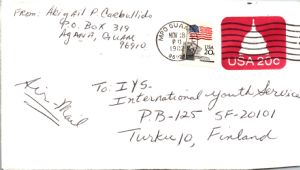 From: Abigail P. Carbullido
P.O. Box 319
Agana, Guam
96910
MPO GUAM
NOV 18
PM
USA
20c
USA 20c
Air Mail
To: IYS-
International Youth Service
P.B-125 SF-20101
Turku 10, Finland